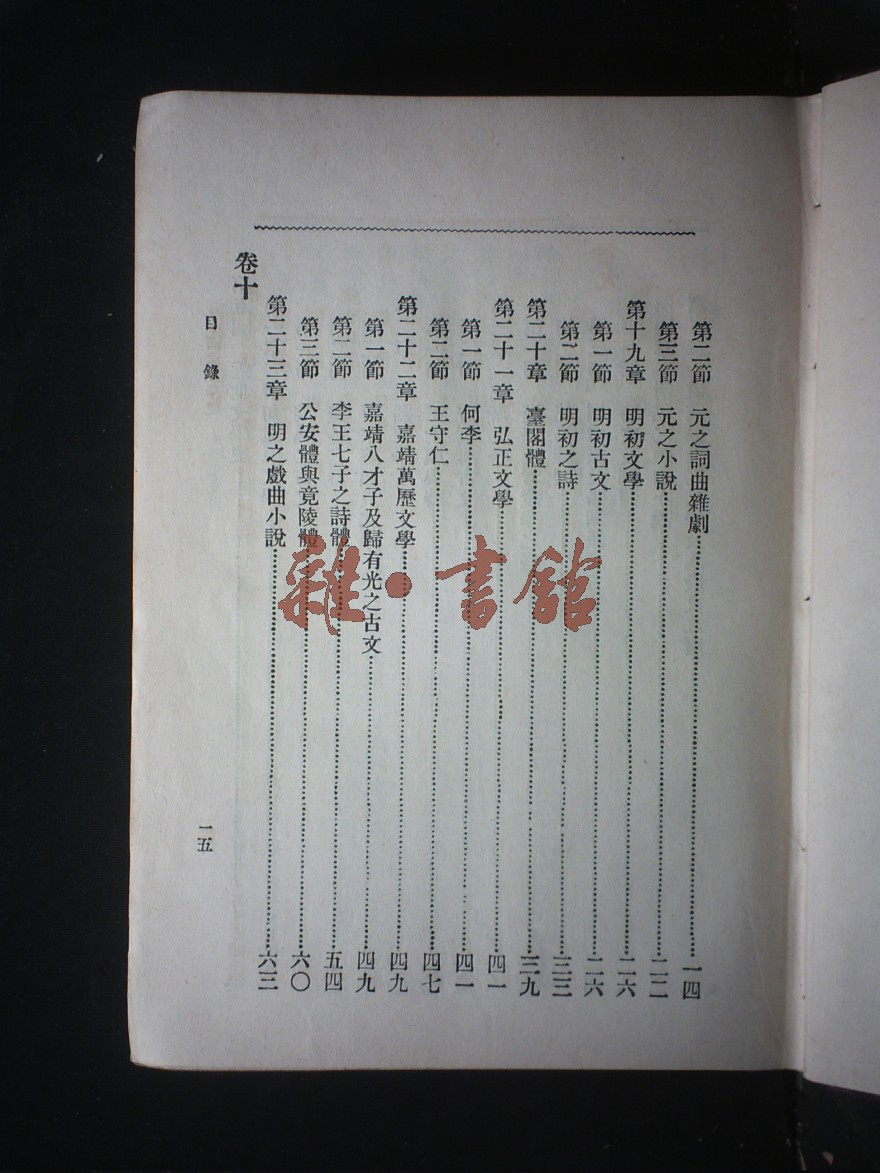 第二節 元之詞曲雜劇……一四
第三節 元之小說……二二
第十九章 明初文學……二六
第一節 明初古文……二六
第二節 明初之詩……三三
第二十章 臺閣體……三九
第二十一章 弘正文學……四一
第一節 何李……四一
第二節 王守仁……四七
第二十二章 嘉靖萬歷文學……四九
第一節 嘉靖八才子及歸有光之古文……四九
第二節 李王七子之詩體……五四
第三節 公安體與竟陵體……六〇
第二十三章 明之戲曲小說……六三
卷十
目錄 一五
雜·書館